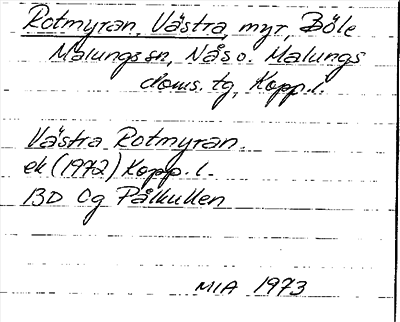 Rotmyran, Västra, myr, Böle
Malungs sn, Nås o. Malungs
doms. tg, Kopp. l.
Västra Rotmyran.
ek (1972) Kopp. l.
13D Og Pålkullen
MIA 1973